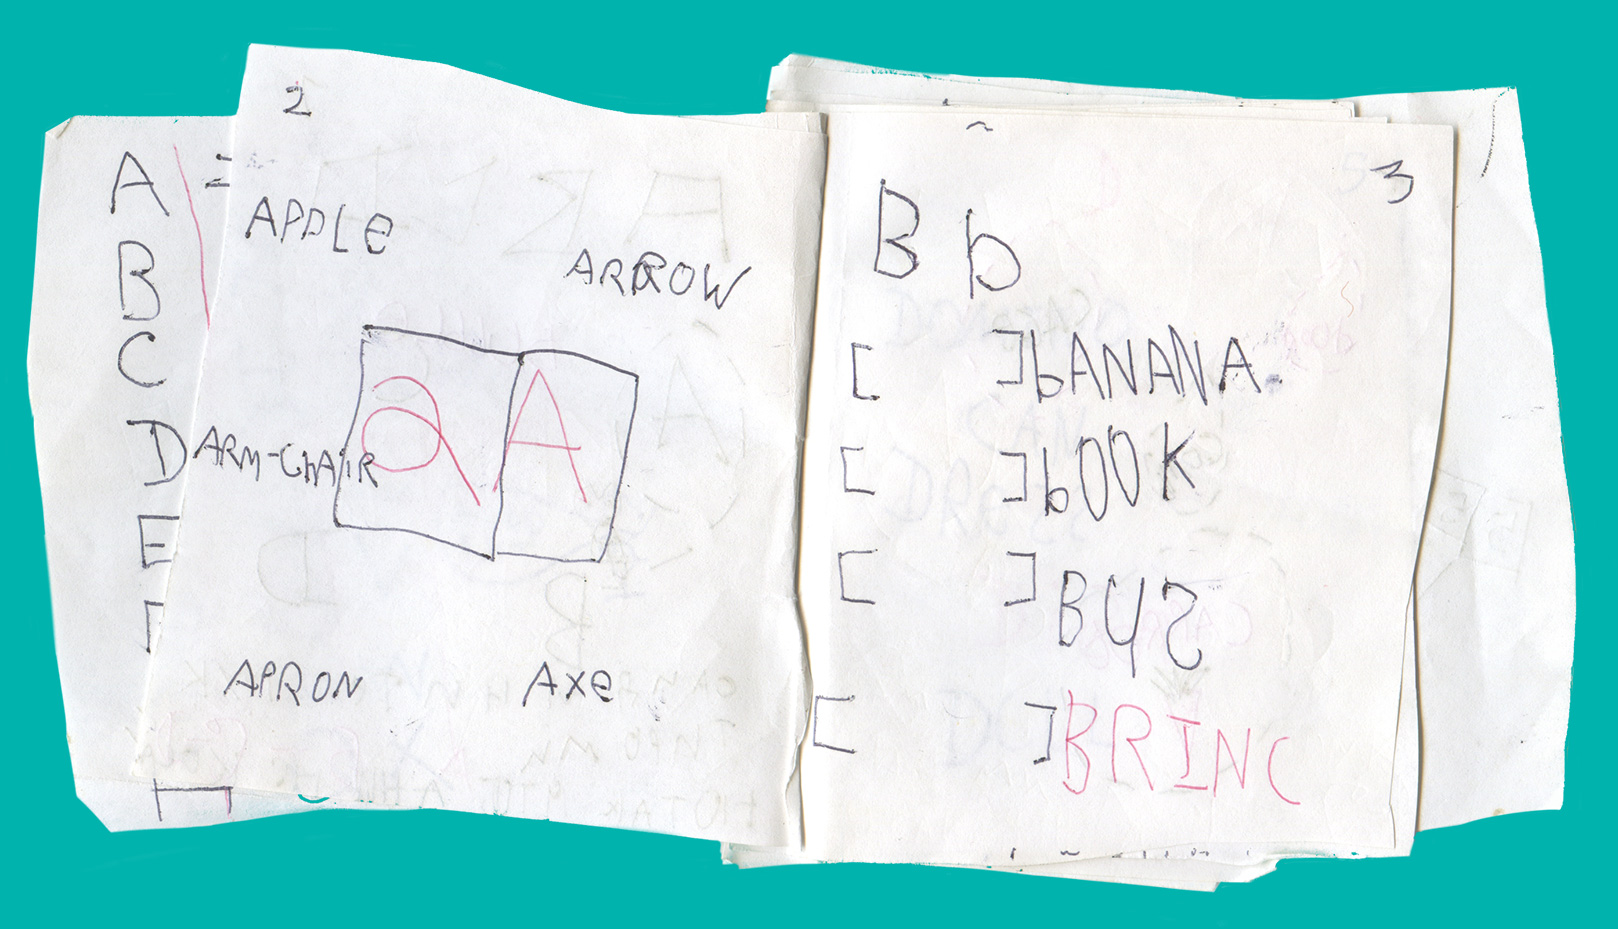 A
B
C
D
E
2
APPLE
ARROW
ARM-ChAiR
a A
APRON
AXe
3
B b
[ ] bANANA.
[ ] bOOK
[ ] BUS
[ ] BRINC